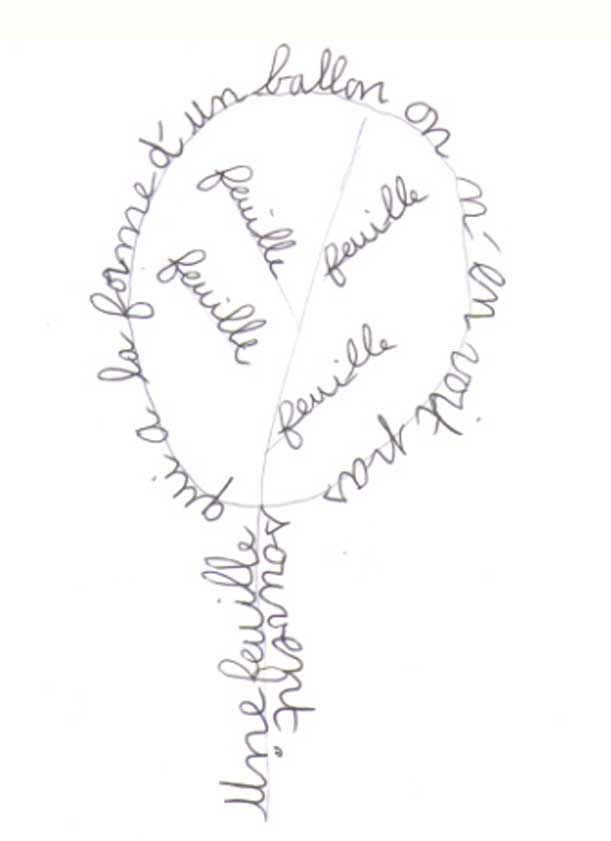 Une feuille
qui a la forme d'un ballon on n'en voit pas
souvent.
feuille
feuille
feuille
feuille